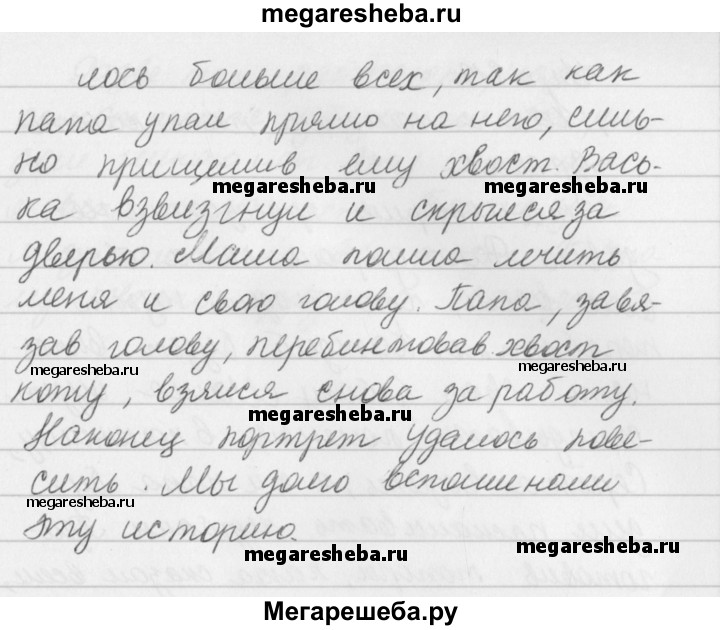 megaresheba.ru
лось больше всех, так как
папа упал прямо на него, силь-
но прищемив ему хвост. Вась-
megaresheba.ru megaresheba.ru
ка взвизгнул и скрылся за
дверью. Мама пошла лечить
меня и свою голову. Папа, завя-
зав голову, перебинтовав хвост
megaresheba.ru megaresheba.ru
коту, взялся снова за работу.
megaresheba.ru
Наконец портрет удалось пове-
сить. Мы долго вспоминали
megaresheba.ru megaresheba.ru
эту историю.
megaresheba.ru megaresheba.ru
Мегарешеба.ру